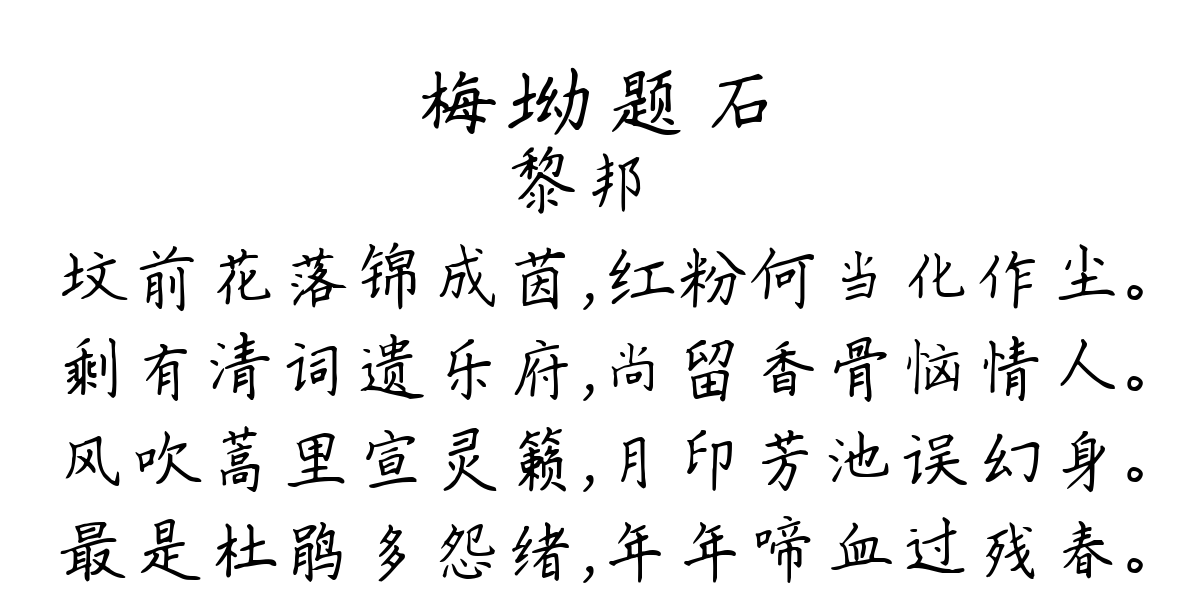 梅坳题石
黎邦
坟前花落锦成茵,红粉何当化作尘。
剩有清词遗乐府,尚留香骨恼情人。
风吹蒿里宣灵籁,月印芳池误幻身。
最是杜鹃多怨绪,年年啼血过残春。